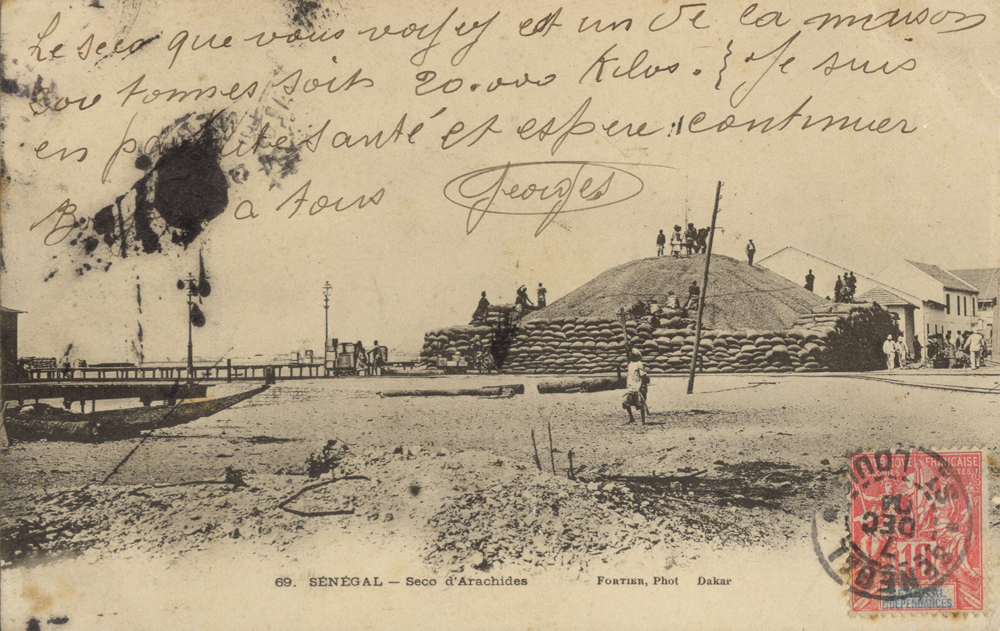 Le seco que vous voyez est un de la maison
200 tonnes soit 20.000 Kilos. } Je suis
en parfaite santé et espère continuer
à tous
Georges
69. SÉNÉGAL — Seco d'Arachides FORTIER, Phot Dakar
FRANÇAISE
10
DÉPENDANCES
ST LOUIS
7
DEC
SÉNÉGAL